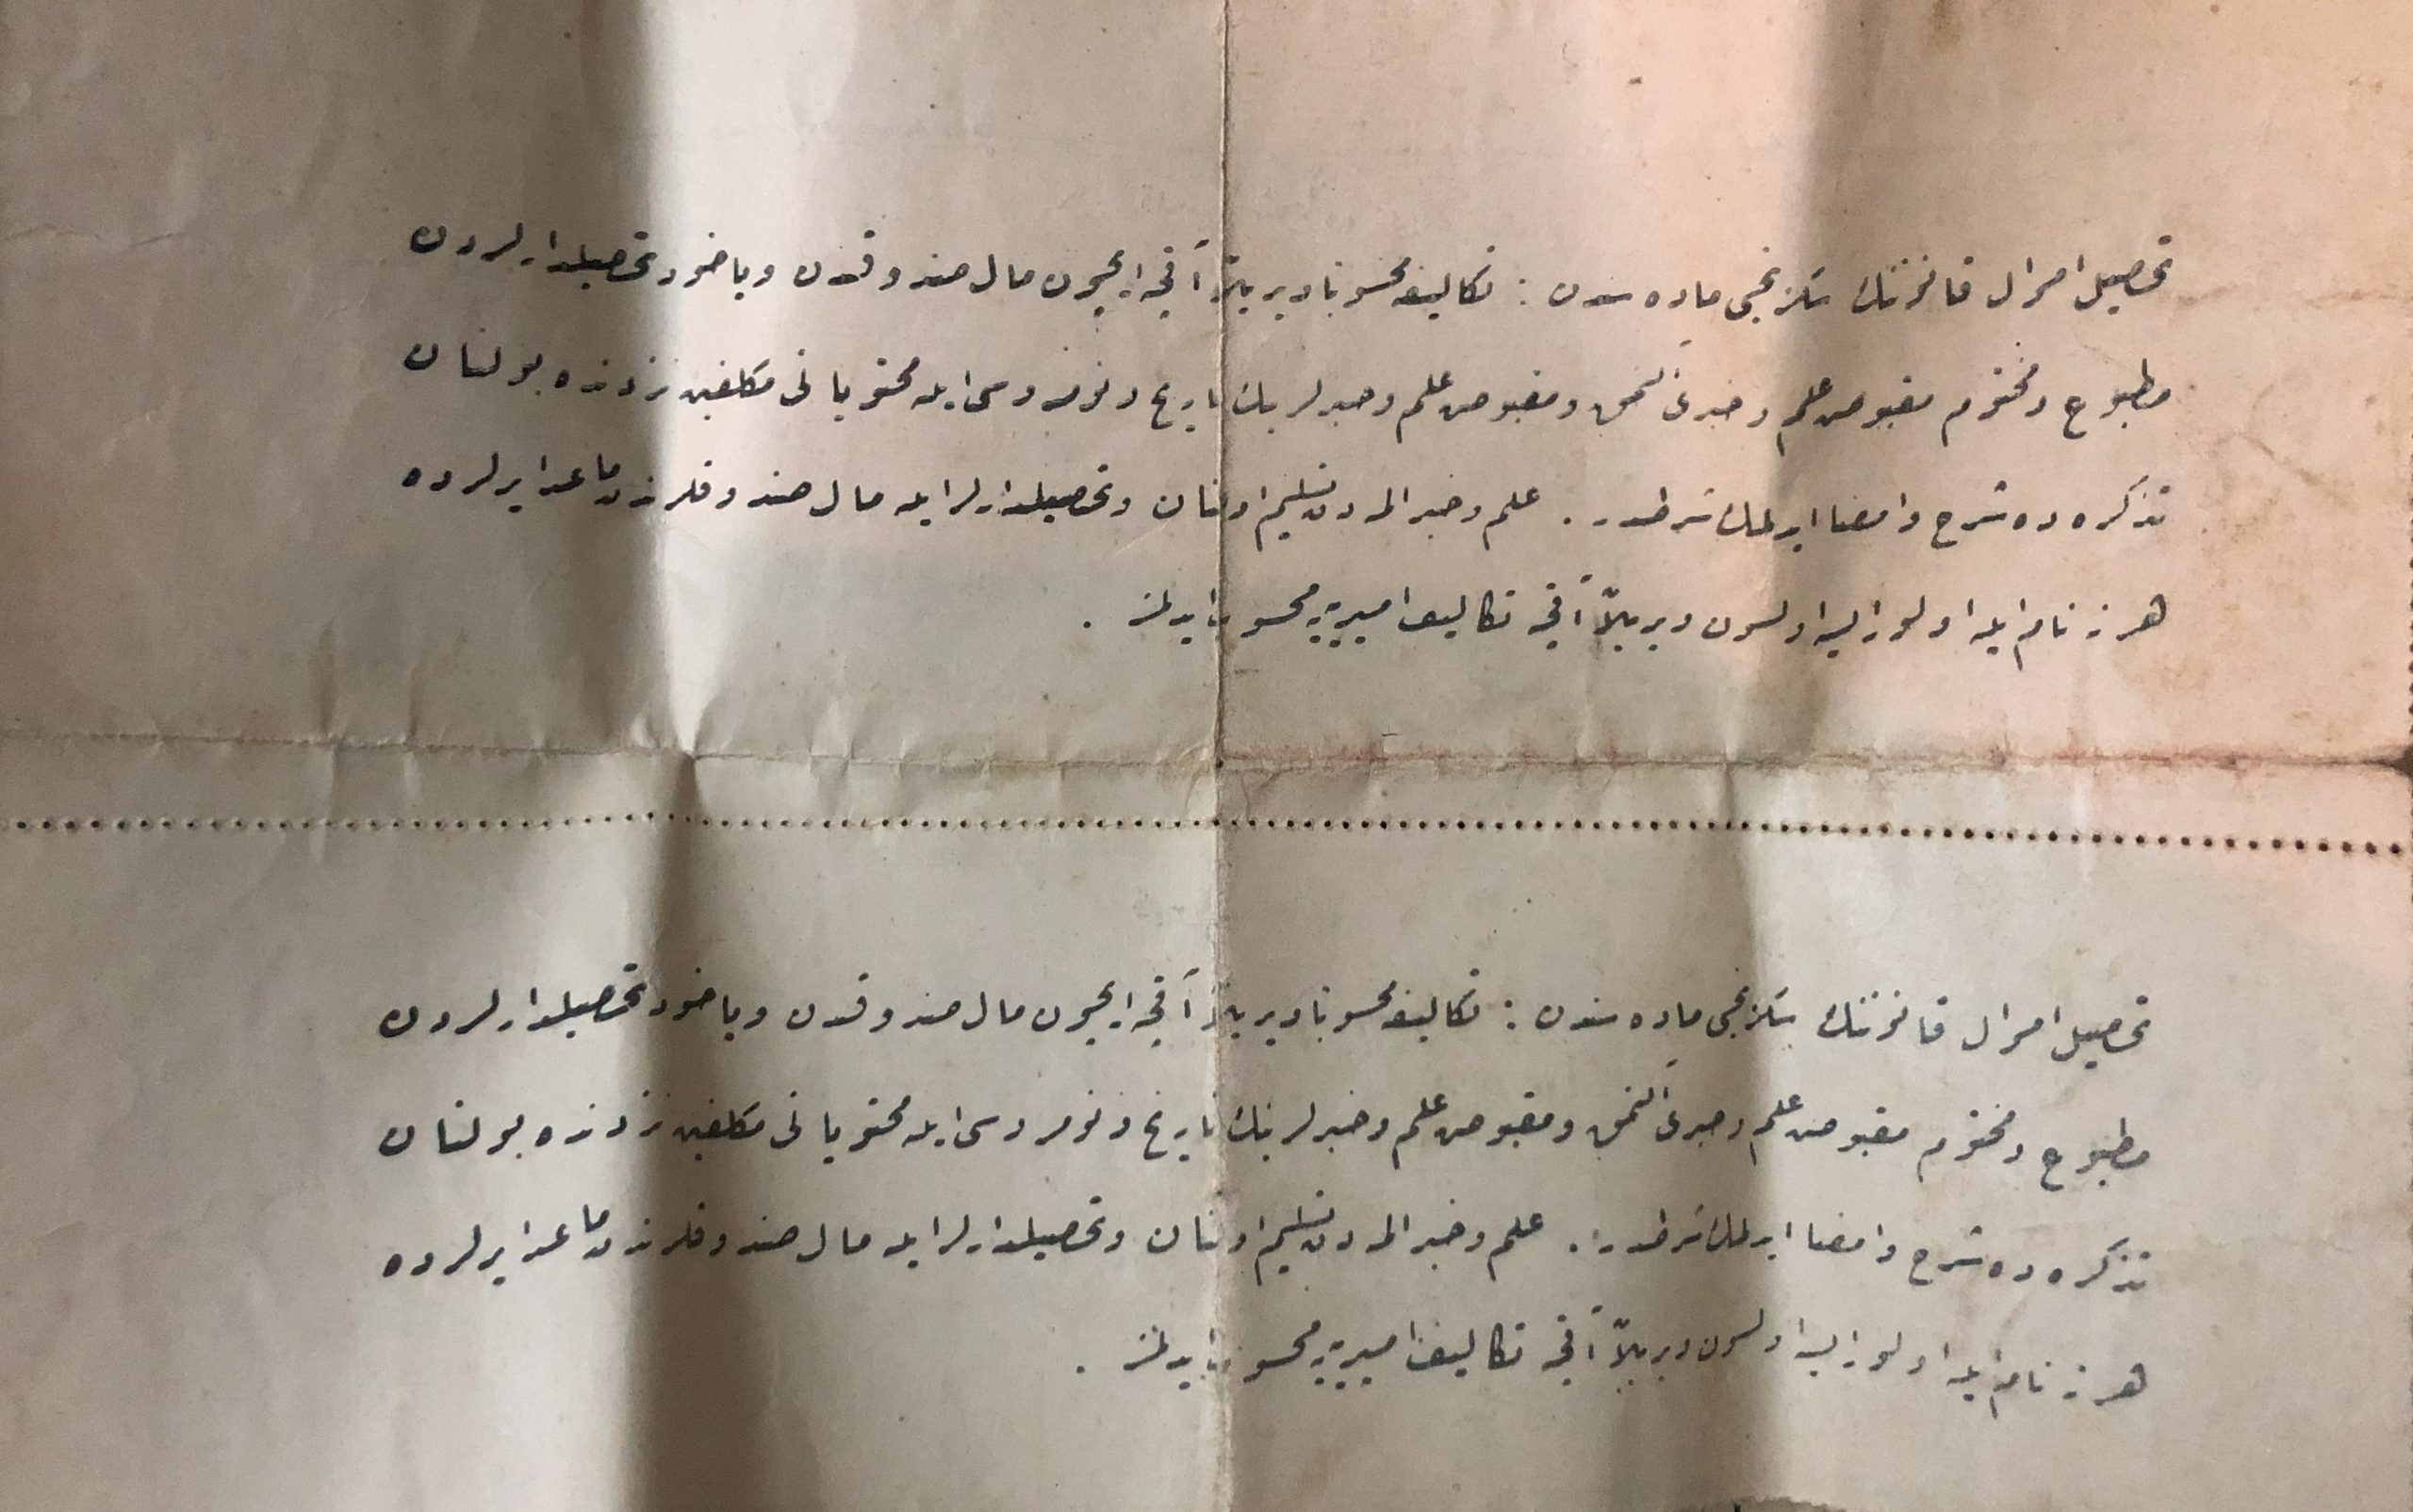 تحصيل اموال قانوننك سكزنجى ماده سندن : تكاليفه محسوبا ويريلن آقچه ايچون مال صندوقندن وياخود تحصيلدارلردن
مطبوع ومختوم مقبوض علم وخبرى آلنمق ومقبوض علم وخبرلرينك تاريخ ونومروسى ايله محتوياتى مكلفين نزدنده بولنان
تذكره ده شرح وامضا ايدلمك شرطدر . علم وخبر المه دن تسليم اولنان وتحصيلدارلر ايله مال صندوقلرندن ماعدا يرلرده
هر نه نام ايله اولورايسه اولسون ويريلن آقچه تكاليف اميريه يه محسوب ايدلمز .
تحصيل اموال قانوننك سكزنجى ماده سندن : تكاليفه محسوبا ويريلن آقچه ايچون مال صندوقندن وياخود تحصيلدارلردن
مطبوع ومختوم مقبوض علم وخبرى آلنمق ومقبوض علم وخبرلرينك تاريخ ونومروسى ايله محتوياتى مكلفين نزدنده بولنان
تذكره ده شرح وامضا ايدلمك شرطدر . علم وخبر المه دن تسليم اولنان وتحصيلدارلر ايله مال صندوقلرندن ماعدا يرلرده
هر نه نام ايله اولورايسه اولسون ويريلن آقچه تكاليف اميريه يه محسوب ايدلمز .